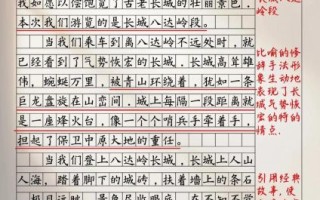 我如愿以偿饱览了古老长城的壮丽景色,
本次我们游览的是长城八达岭段。
岭段
当我们乘车到离八达岭不远处时,就
已经看到了气势恢宏的长城,长城高耸雄
伟,蜿蜒万里,被青山环绕着,犹如一条
巨龙盘旋在山峦间,城上每隔一段距离就
是一座烽火台,像一个个哨兵手牵着手,
担起了保卫中原大地的重任。
比喻的修
辞手法形
象生动地
表现了长
城气势恢
宏的特的
特点.
当我们登上八达岭长城,长城上人山
人海,踏着脚下的城砖,扶着墙上的条石
引用经典
故事,使